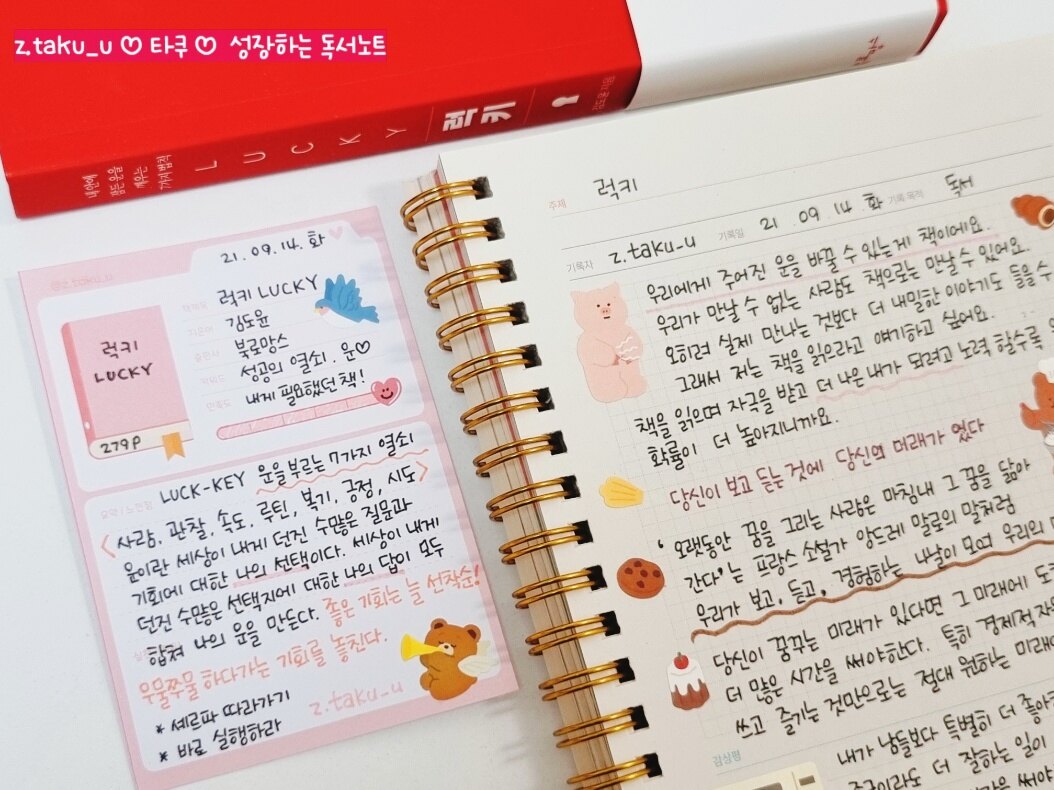 z.taku_u ♡ 타쿠 ♡ 성장하는 독서노트
내 안에
잠든 운을
깨우는
7가지 법칙
LUCKY
럭키
김도윤 지음
북로망스
@z.taku_u
21. 09. 14. 화
럭키 LUCKY
지은이 김도윤
출판사 북로망스
키워드 성공의 열쇠. 운♡
만족도 내게 필요했던 책!
럭키
LUCKY
279P
LUCK-KEY 운을 부르는 7가지 열쇠
<사람, 관찰, 속도, 루틴, 복기, 긍정, 시도>
운이란 세상이 내게 던진 수많은 질문과
기회에 대한 나의 선택이다. 세상이 내게
던진 수많은 선택지에 대한 나의 답이 모두
합쳐 나의 운을 만든다. 좋은 기회는 늘 선착순!
우물쭈물 하다가는 기회를 놓친다.
* 셰르파 따라가기
* 바로 실행하라
z.taku-u
주제 럭키
기록자 z.taku-u 기록일 21. 09. 14. 화 기록 목적 독서
우리에게 주어진 운을 바꿀 수 있는게 책이에요.
우리가 만날 수 없는 사람도 책으로는 만날 수 있어요.
오히려 실제 만나는 것보다 더 내밀한 이야기도 들을 수
그래서 저는 책을 읽으라고 얘기하고 싶어요.
책을 읽으며 자극을 받고 더 나은 내가 되려고 노력 할수록
확률이 더 높아지니까요.
당신이 보고 듣는 것에 당신의 미래가 있다
'오랫동안 꿈을 그리는 사람은 마침내 그 꿈을 닮아
간다'는 프랑스 소설가 앙드레 말로의 말처럼
우리가 보고, 듣고, 경험하는 나날이 모여 우리의
당신이 꿈꾸는 미래가 있다면 그 미래에
더 많은 시간을 써야한다. 특히 경제적
쓰고 즐기는 것만으로는 절대 원하는
감상평
내가 남들보다 특별히 더
더 잘하는 일이
써야